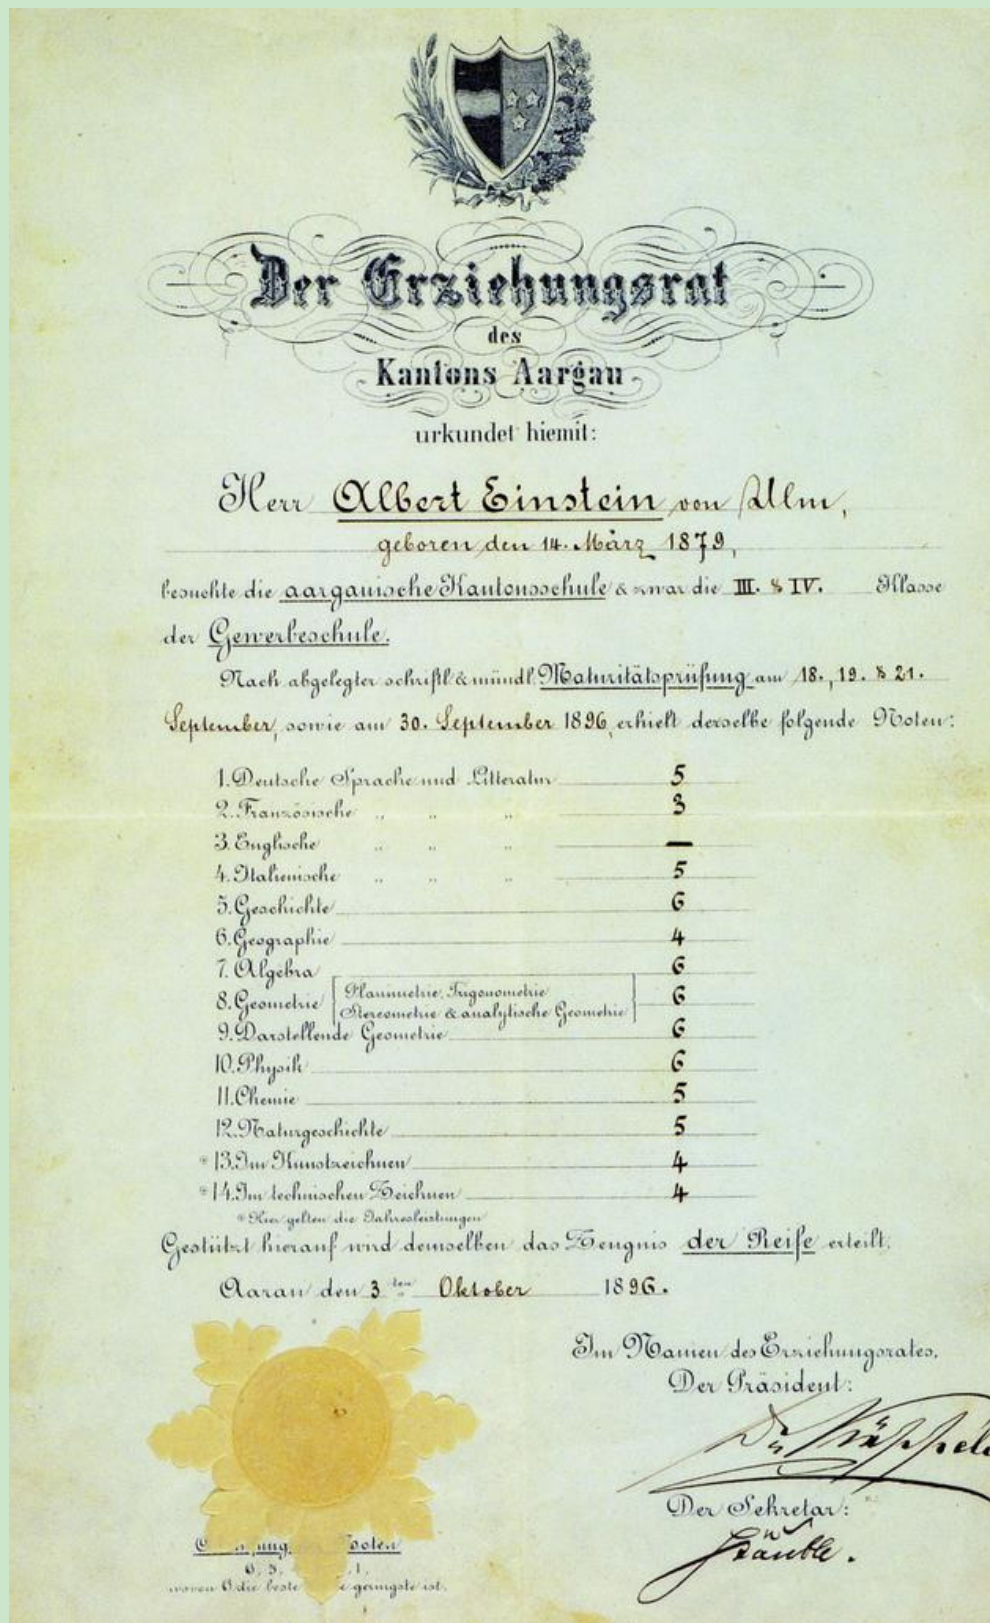 Der Erziehungsrat
des
Kantons Aargau
urkundet hiemit:
Herr Albert Einstein von Ulm,
geboren den 14. März 1879,
besuchte die aargauische Kantonsschule & zwar die III. & IV. Klasse
der Gewerbeschule.
Nach abgelegter schriftl. & mündl. Maturitätsprüfung am 18., 19. & 21.
September, sowie am 30. September 1896, erhielt derselbe folgende Noten:
1. Deutsche Sprache und Litteratur 5
2. Französische „ „ „ 3
3. Englische „ „ „ —
4. Italienische „ „ „ 5
5. Geschichte 6
6. Geographie 4
7. Algebra 6
8. Geometrie [Planimetrie, Trigonometrie 6
Stereometrie & analytische Geometrie]
9. Darstellende Geometrie 6
10. Physik 6
11. Chemie 5
12. Naturgeschichte 5
* 13. Im Kunstzeichnen 4
* 14. Im technischen Zeichnen 4
* Hier gelten die Jahresleistungen
Gestützt hierauf wird demselben das Zeugnis der Reife erteilt.
Aarau den 3ten Oktober 1896.
Im Namen des Erziehungsrates,
Der Präsident:
Dr
Der Sekretär:
Stäuble.
Noten
6, 5, 1,
wovon 6 die beste geringste ist.